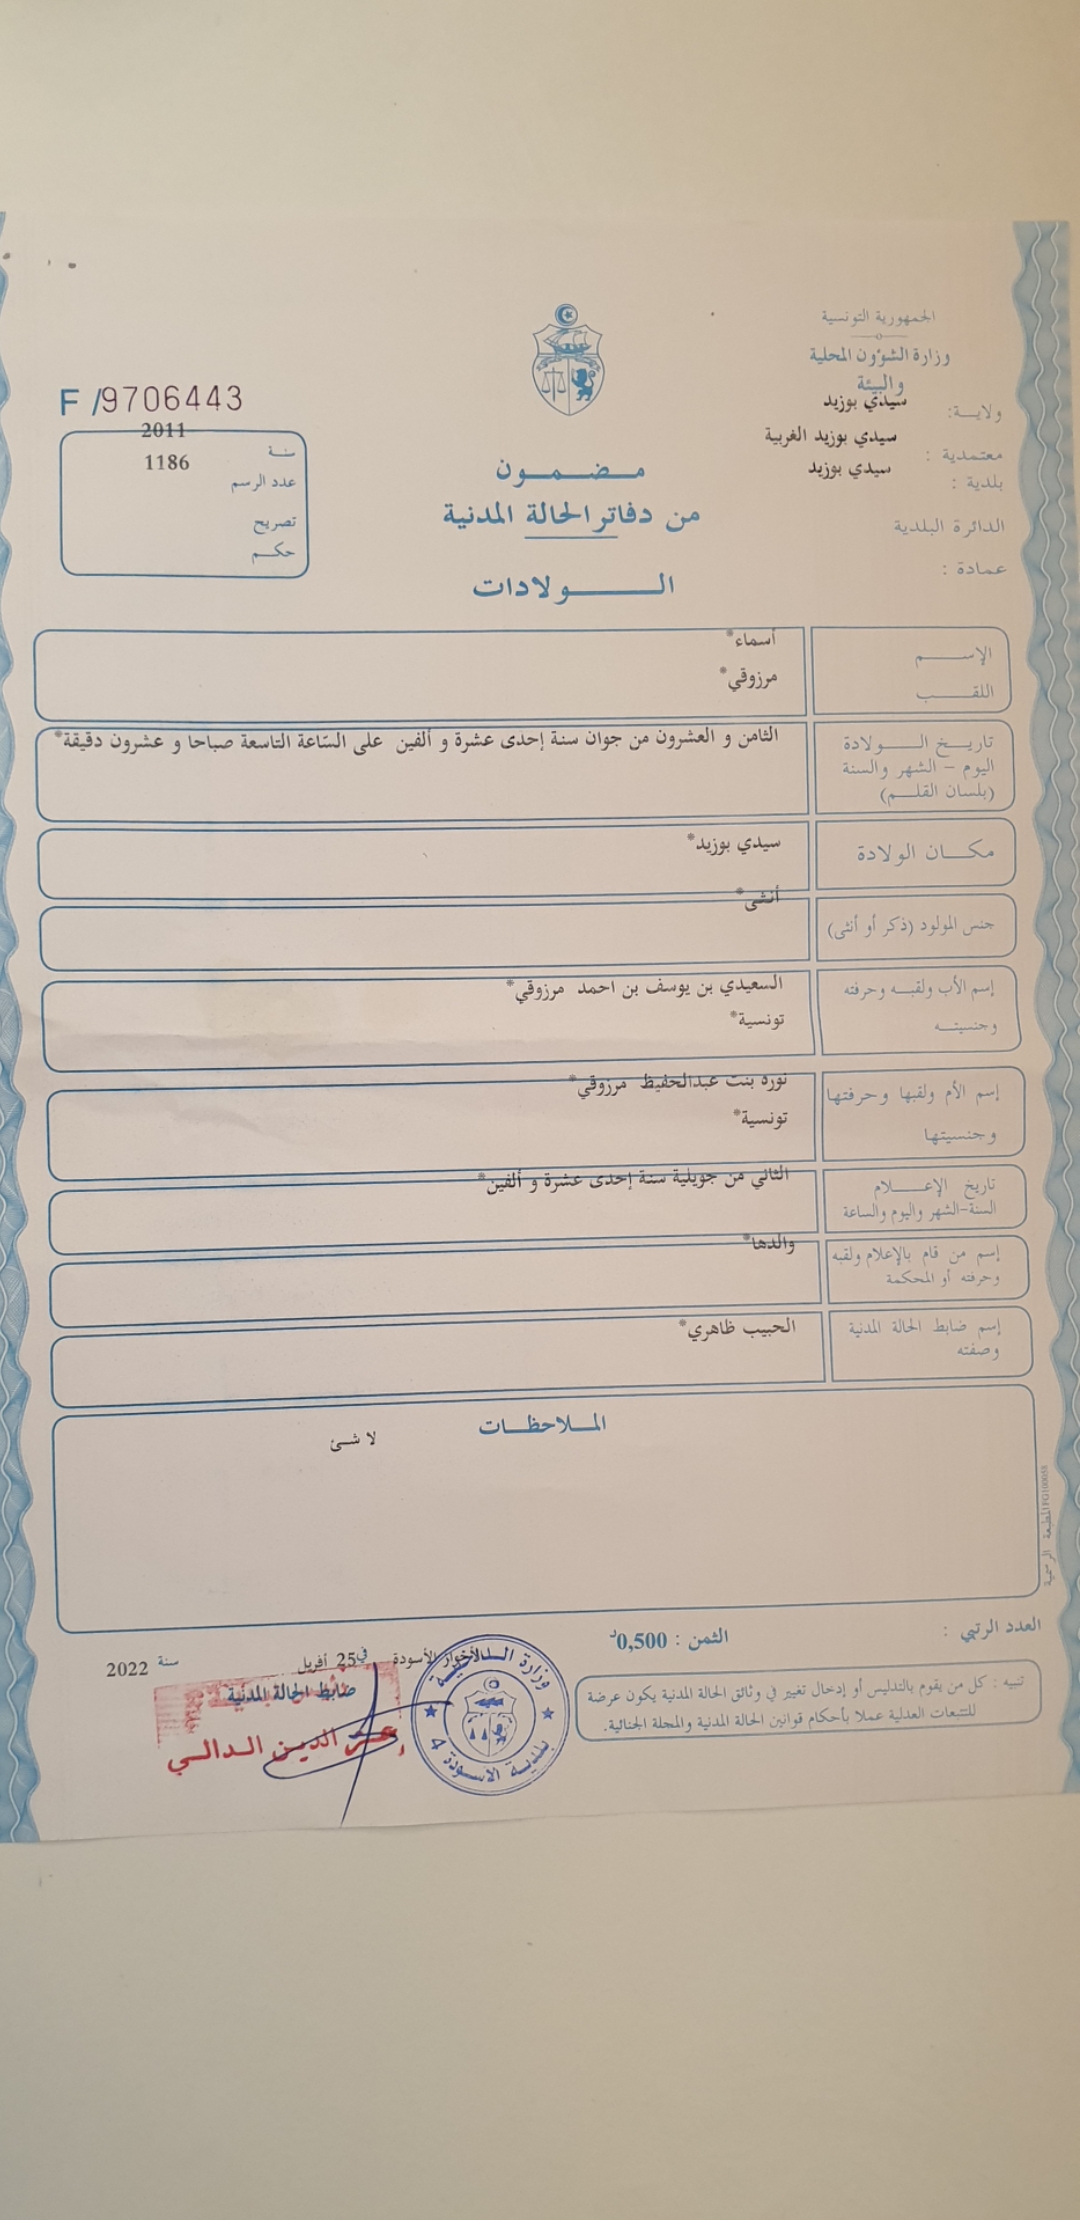 الجمهورية التونسية
وزارة الشؤون المحلية
والبيئة
ولايــة: سيدي بوزيد
معتمدية : سيدي بوزيد الغربية
بلدية : سيدي بوزيد
الدائرة البلدية
عمادة :
F /9706443
سنــة 2011
عدد الرسم 1186
تصريح
حكــم
مـــضــمـــون
من دفاتر الحالة المدنية
الـــــولادات
الإســـــم أسماء*
اللقـــب مرزوقي*
تاريـــخ الـــــولادة
اليوم – الشهر والسنة
(بلسان القلـــم)
الثامن و العشرون من جوان سنة إحدى عشرة و ألفين على السّاعة التاسعة صباحا و عشرون دقيقة*
مكـــان الولادة سيدي بوزيد*
جنس المولود (ذكر أو أنثى) أنثى*
إسم الأب ولقبــه وحرفته السعيدي بن يوسف بن احمد مرزوقي*
وجنسيتــه تونسية*
إسم الأم ولقبها وحرفتها بنت عبدالحفيظ مرزوقي*
وجنسيتها تونسية*
تاريخ الإعـــــلام
السنة-الشهر واليوم والساعة
الثاني من جويلية سنة إحدى عشرة و ألفين*
إسم من قام بالإعلام ولقبه
وحرفته أو المحكمة
والدها*
إسم ضابط الحالة المدنية
وصفته
الحبيب ظاهري*
المــلاحظــات
لا شئ
المطبعة الرسمية
العدد الرتبي :
الثمن : 0,500د
الأسودة في 25 أفريل سنة 2022
ضابط الحالة المدنية
عــز الديـن الـدالـي
وزارة الـداخليـة
بلديـة الاسـودة 4
تنبيه : كل من يقوم بالتدليس أو إدخال تغيير في وثائق الحالة المدنية يكون عرضة
للتتبعات العدلية عملا بأحكام قوانين الحالة المدنية والمجلة الجنائية.